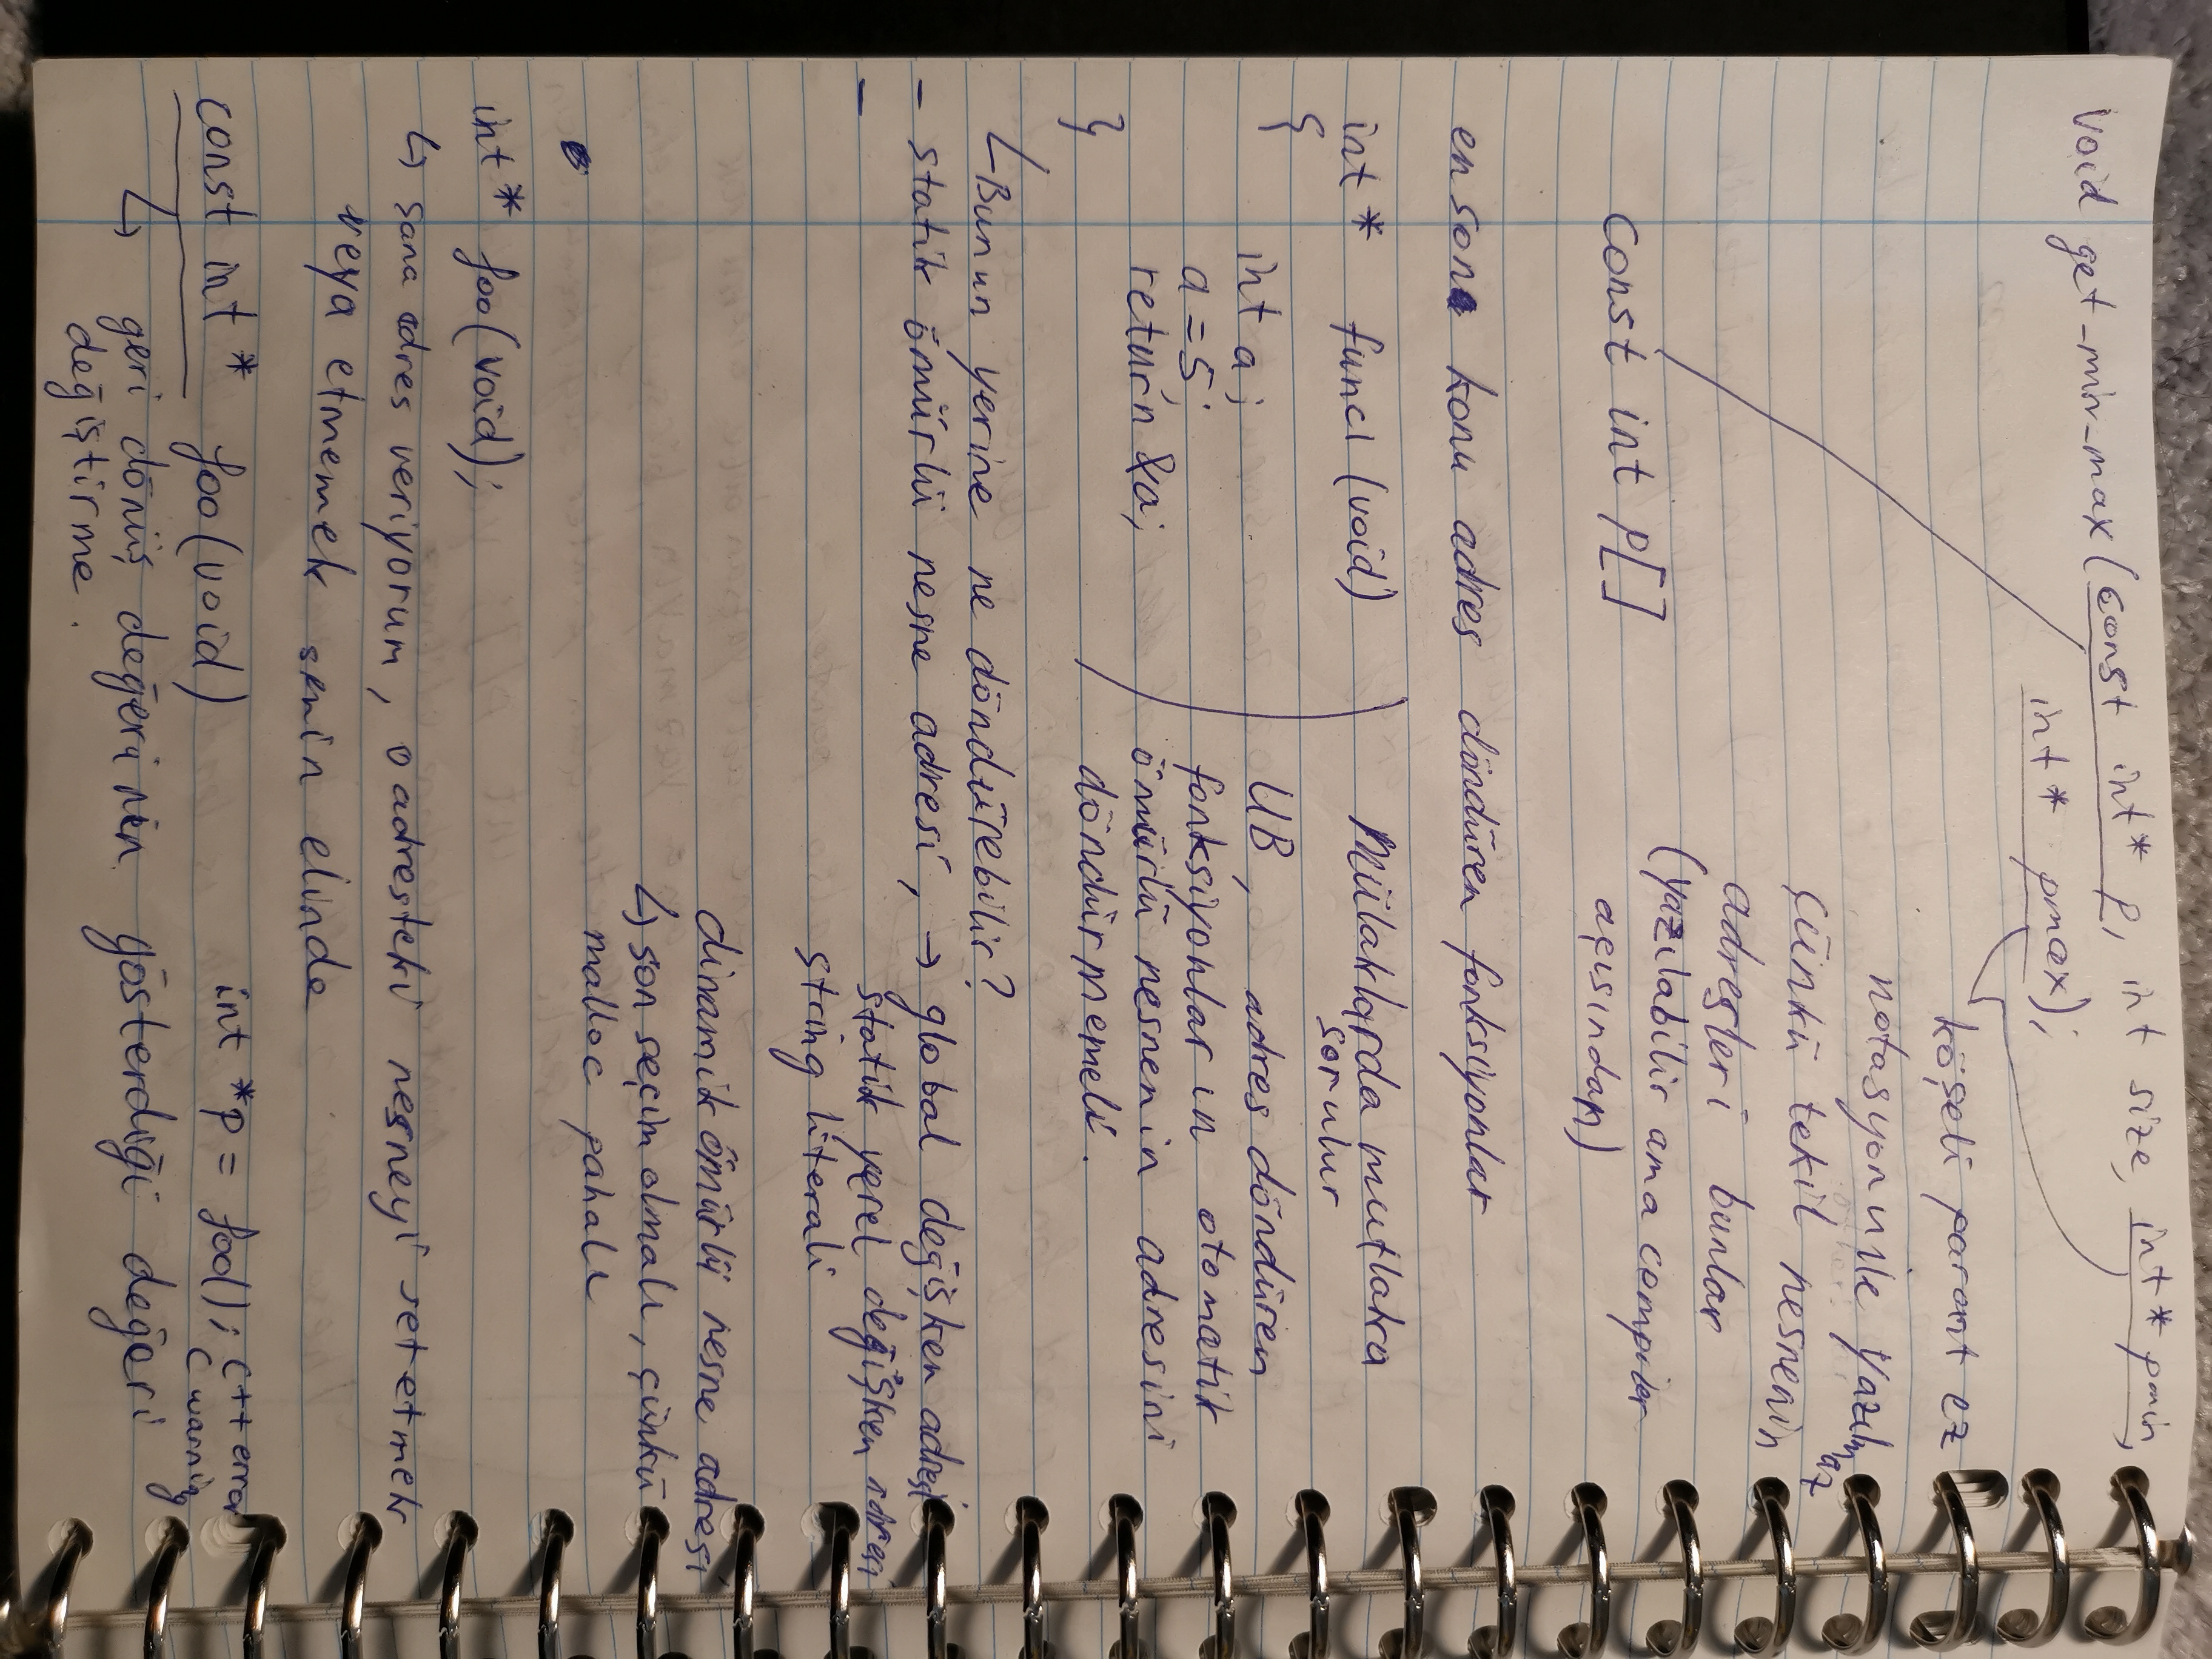 void get_min_max(const int* p, int size, int* pmin,
int* pmax);
köşeli parantez
notasyonu ile yazılmaz
çünkü tekil nesnenin
adresleri bunlar
(yazılabilir ama compiler
açısından)
const int p[]
en son konu adres döndüren fonksiyonlar
int* func1(void)
{
int a;
a = 5;
return &a;
}
Mülaklarda mutlaka
sorulur
UB, adres döndüren
fonksiyonların otomatik
ömürlü nesnenin adresini
döndürmemeli.
Bunun yerine ne döndürebilir?
- statik ömürlü nesne adresi, → global değişken adresi
- statik yerel değişken adresi
string literali
dinamik ömürlü nesne adresi
↳ son seçim olmalı, çünkü
malloc pahalı
int* foo(void);
↳ sana adres veriyorum, o adresteki nesneyi set etmek
veya etmemek senin elinde
const int* foo(void) int *p = foo(); C++ error
C warning
↳ geri dönüş değerinin gösterdiği değeri
değiştirme.